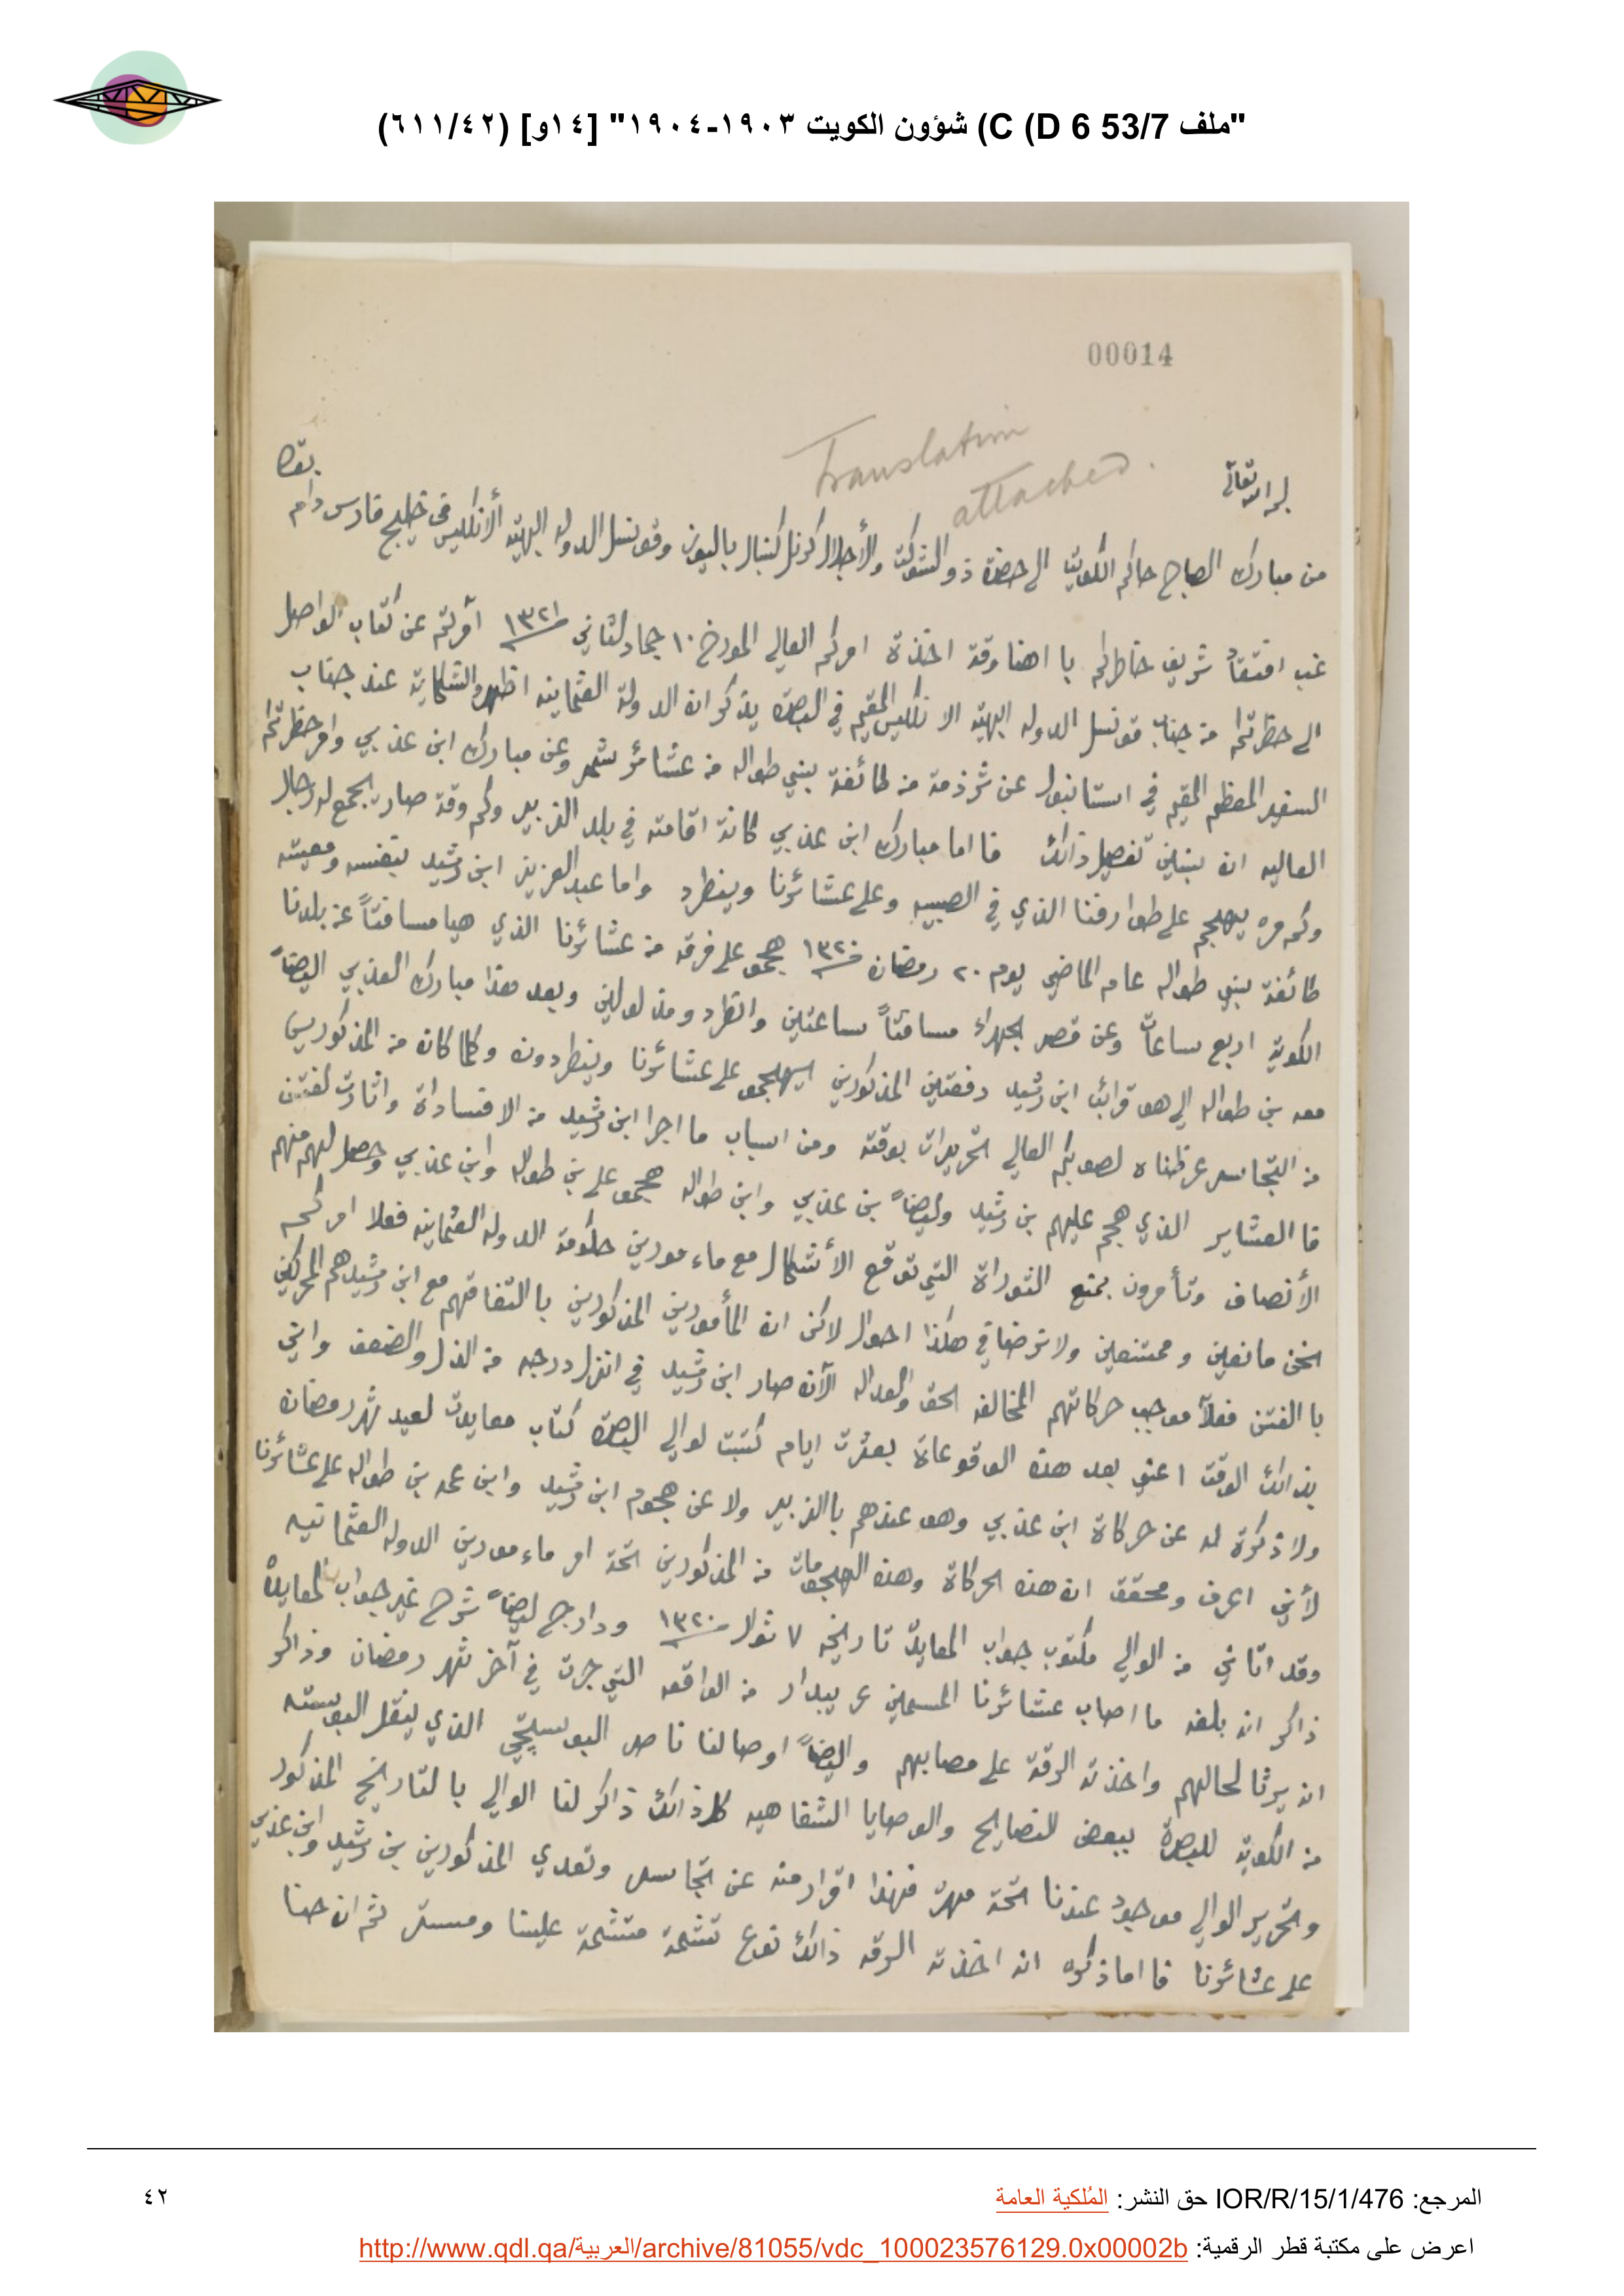 "ملف 53/7 C (D 6) شؤون الكويت ١٩٠٣-١٩٠٤" [١٤و] (٦١١/٤٢)
00014
Translation
attached.
بقاه
من مبارك الصباح حاكم الكويت الى حضرة ذو الشوكت والأجلال كرنل كنبال باليوز وقونسل الدوله البهيه الأنكليس في خليج فارس دام
غب افتقاد شريف خاطركم با اهنا وقت اخذة امركم العالي المورخ ١٠ جماد الثاني ١٣٢١ أمرتم عن كتاب الواصل
الى حظرتكم من جناب قونسل الدوله البهيه الانكليس المقيم في البصره يذكر ان الدولة العثمانيه اظهرة الشكايه عند جناب
السفير المعظم المقيم في استانبول عن شرذمة من طائفة بني طواله من عشائر شمر وعن مبارك ابن عذبي وامر حظرتكم
العاليه ان يبين تفصيل ذالك فا اما مبارك ابن عذبي كانة اقامته في بلد الزبير وكم وقت صار يجمع له رجال
وكم مره يهجم على طوارفنا الذي في الصبيه وعلى عشائرنا وينطرد واما عبد العزيز ابن رشيد بنفسه ومعيته
طائفة بني طواله عام الماضي يوم ٢٠ رمضان ١٣٢٠ هجمو على فرقه من عشائرنا الذي هيا مسافتاً عن بلدنا
الكويت اربع ساعات وعن قصر الجهراء مسافتاً ساعتين وانطرد ومذلولين وبعد هذا مبارك العذبي اليضاً
معه بن طواله الى هو قرائب ابن رشيد دفعتين المذكورين ايهجمو على عشائرنا وينطردون وكلما كان من المذكورين
من التجاسر عرظناه لصوبكم العالي التحريرات بوقته ومن اسباب ما اجرا ابن رشيد من الافسادات واثارت لفتن
فا العشاير الذي هجم عليهم بن رشيد وليضاً بن عذبي وابن طواله هجمو على بن طواله وابن عذبي وحصل لهم منهم
الأنصاف وتأمرون بمنع الثوراة التي توقع الأشكال مع ماء مورين حكومة الدوله العثمانيه فعلا امركم
نحن مانعين وممتنعين ولا نرضا في هكذا احوال لاكن ان المأمورين المذكورين با التفاقهم مع ابن رشيد هم المحركين
با الفتن فعلاً موجب حركاتهم المخالفه الحق والعداله الآن صار ابن رشيد في انزل درجه من الذل والضعف واني
بذالك الوقت اعني بعد هذه الوقوعاة بعشرت ايام كتبت لوالي البصرة كتاب معايدت لعيد شهر رمضان
ولا ذكرة له عن حركاة ابن عذبي وهو عندهم با الزبير ولا عن هجوم ابن رشيد وابن عمه بن طواله على عشائرنا
لأني اعرف ومحقق ان هذه الحركاة وهذه الهجومات من المذكورين تحة امر ماء مورين الدوله العثمانيه
وقد اتاني من الوالي مكتوب جواب المعايدة تاريخه ٧ شوال ١٣٢٠ ودارج ليضاً شرح غير جواب المعايدة
ذاكر انه بلغه ما اصاب عشائرنا المسمين عريبدار من الواقعه التي جرت في آخر شهر رمضان وذاكر
انه يرثا لحالهم واخذته الرقة على مصابهم واليضاً اوصا لنا ناصر البوسيتجي الذي ينقل البوسته
من الكويت للبصرة ببعض النصايح والوصايا الشفاهيه كلذالك ذاكر لنا الوالي با لتاريخ المذكور
وتحرير الوالي موجود عندنا تحة مهره فهذا اقرار منه عن تجاسر وتعدي المذكورين بن رشيد وابن عذبي
على عشائرنا فا اما ذكره انه اخذته الرقه ذالك نوع تشمة متشمة علينا ومستر ثم ان حنا
المرجع: IOR/R/15/1/476 حق النشر: المُلكية العامة
٤٢
اعرض على مكتبة قطر الرقمية: http://www.qdl.qa/العربية/archive/81055/vdc_100023576129.0x00002b